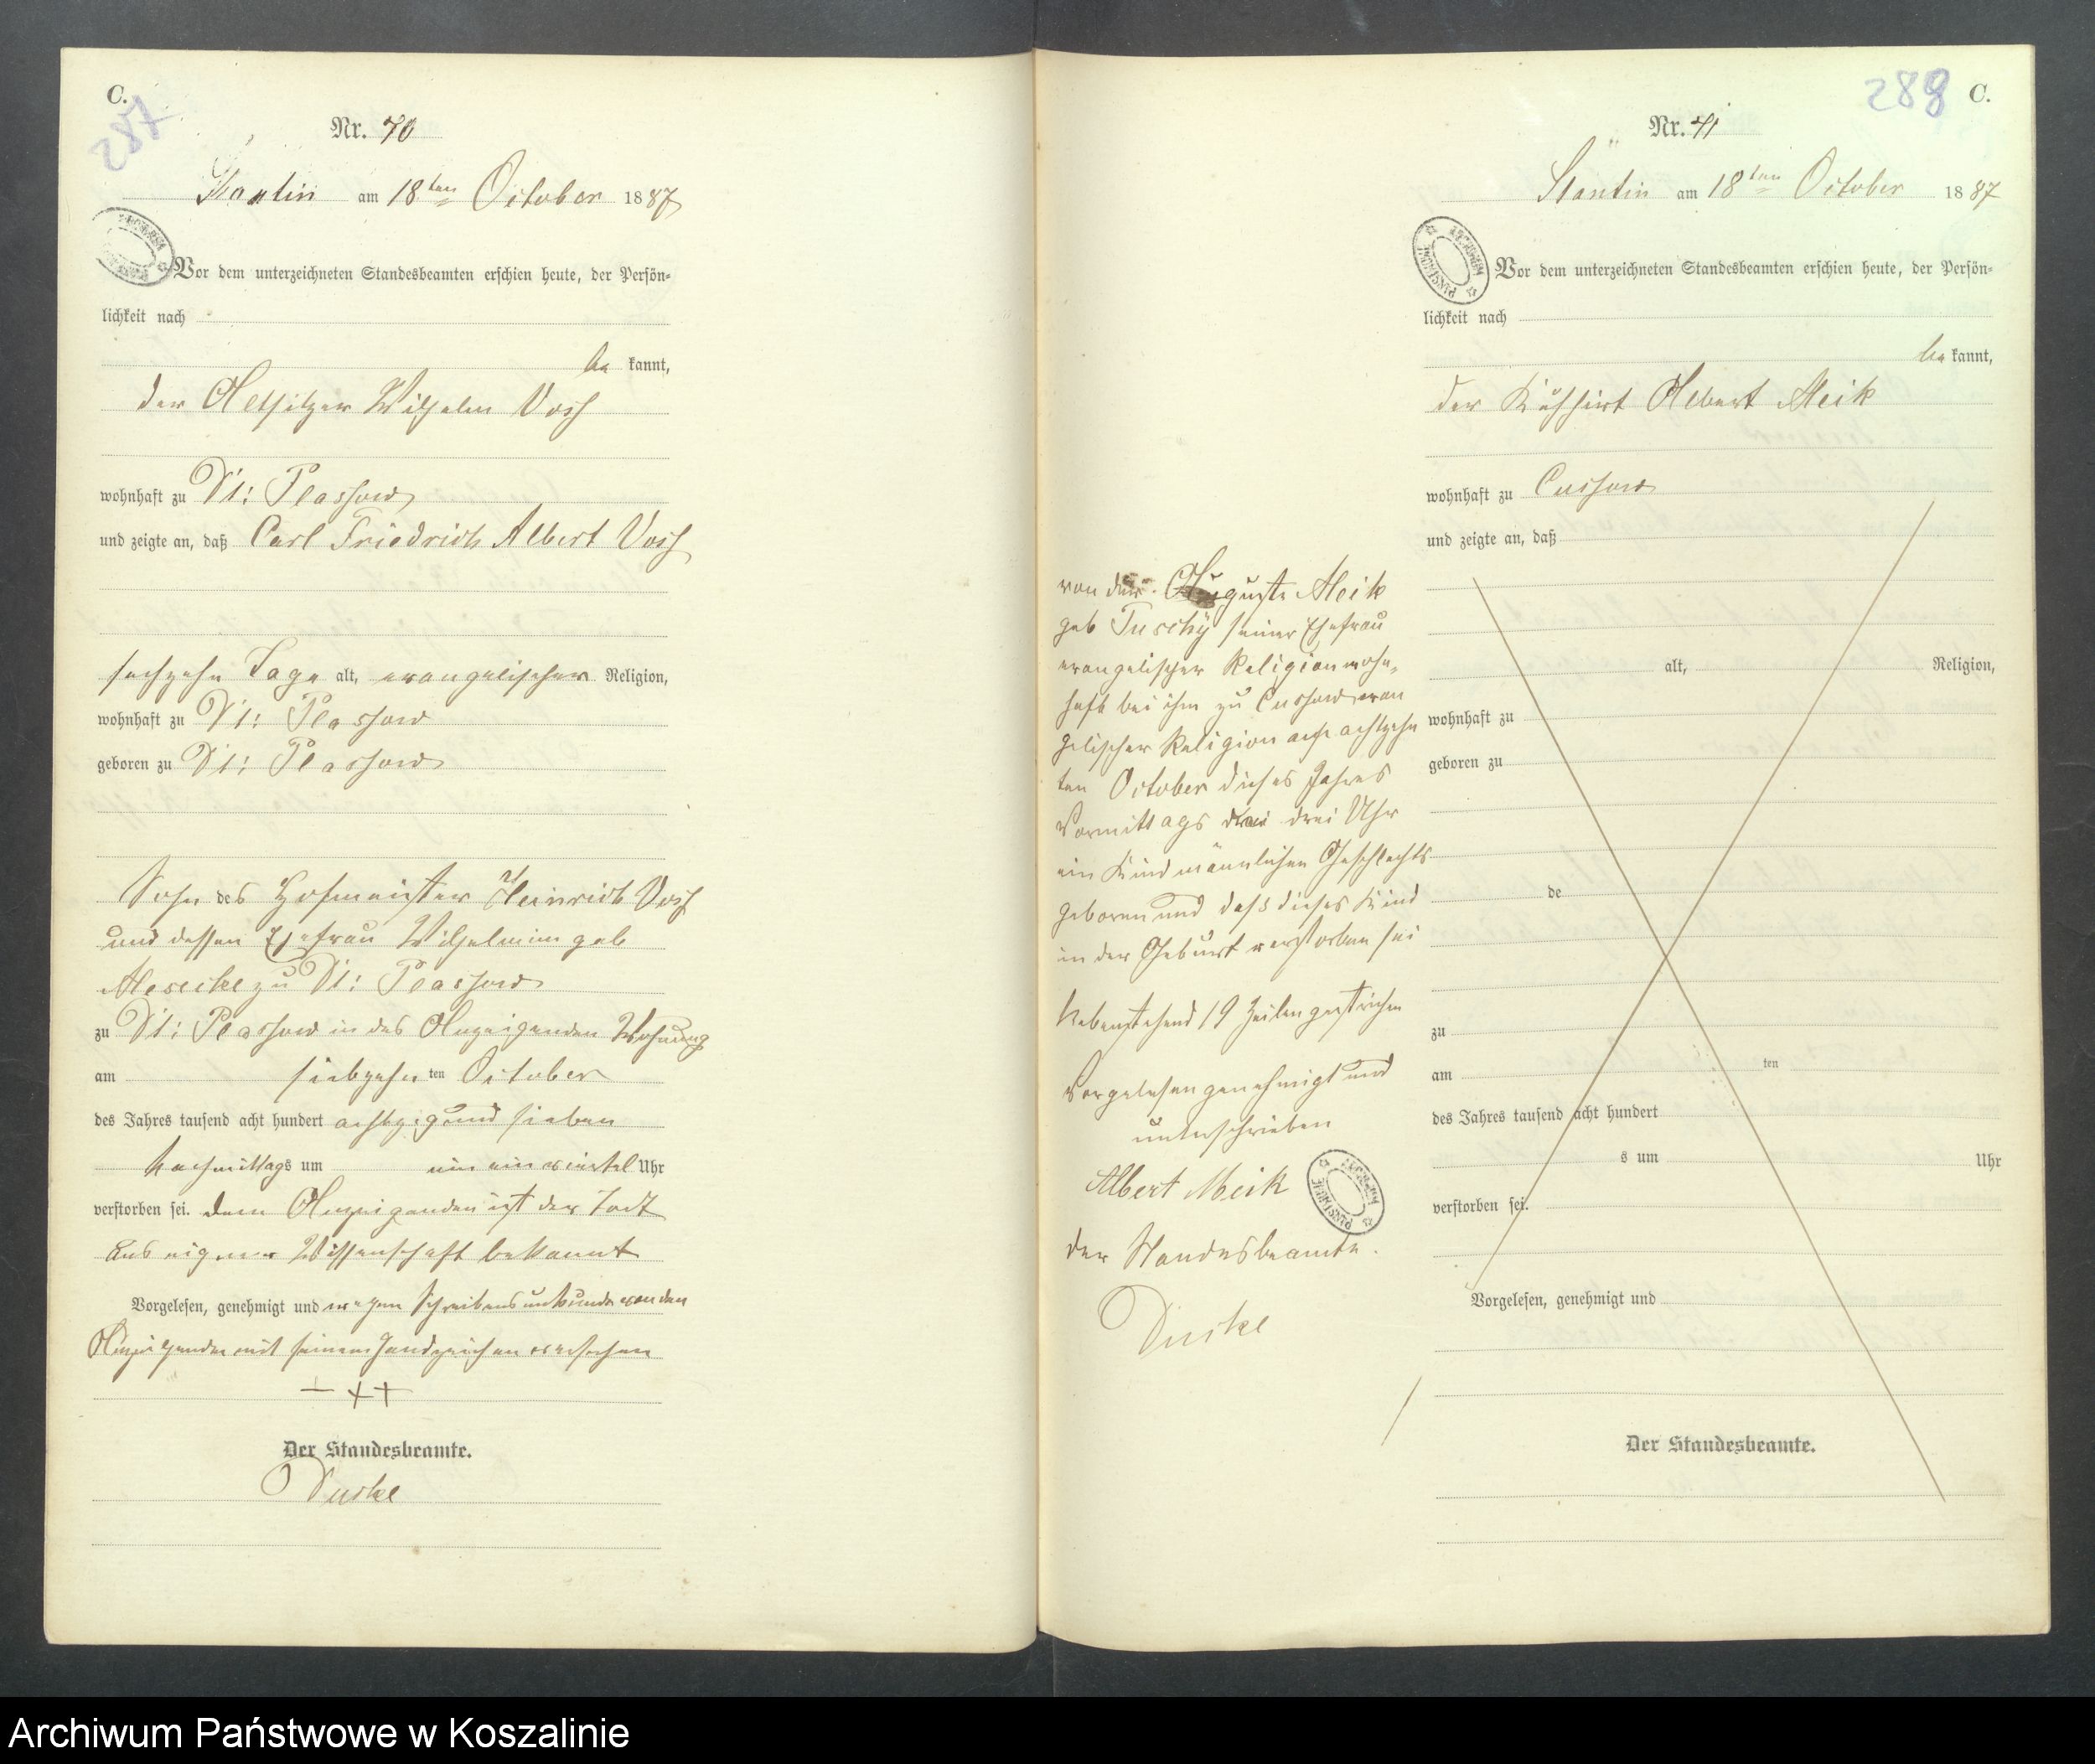 C.
287
Nr. 70
Stantin am 18ten October 1887
Vor dem unterzeichneten Standesbeamten erschien heute, der Persön-
lichkeit nach
be kannt,
der Altsitzer Wilhelm Voss
wohnhaft zu Dt: Plassow
und zeigte an, daß Carl Friedrich Albert Voss
sechzehn Tage alt, evangelischer Religion,
wohnhaft zu Dt: Plassow
geboren zu Dt: Plassow
Sohn des Hofmeister Heinrich Voss
und dessen Ehefrau Wilhelmine geb
zu Dt: Plassow
zu Dt: Plassow in des Anzeigenden Wohnung
am siebzehnten October
des Jahres tausend acht hundert achtzig und sieben
Nachmittags um ein ein viertel Uhr
verstorben sei. dem Anzeigenden ist der Todt
aus eigener Wissenschaft bekannt
Vorgelesen, genehmigt und wegen Schreibensunkunde von den
Anzeigenden mit seinem Handzeichen versehen
+++
Der Standesbeamte.
288 C.
Nr. 71
Stantin am 18ten October 1887
Vor dem unterzeichneten Standesbeamten erschien heute, der Persön-
lichkeit nach
be kannt,
der Kuhhirt Albert Meik
wohnhaft zu Cussow
und zeigte an, daß
von der Auguste Meik
geb seiner Ehefrau
evangelischer Religion wohn-
haft bei ihm zu Cussow evan
gelischer Religion am achtzehn
ten October dieses Jahres
Vormittags drei Uhr
ein Kind männlichen Geschlechts
geboren und dass dieses Kind
in der Geburt verstorben sei
Nebenstehend 19 Zeilen gestrichen
Vorgelesen genehmigt und
unterschrieben
Albert Meik
der Standesbeamte.
alt, Religion,
wohnhaft zu
geboren zu
de
zu
am ten
des Jahres tausend acht hundert
s um Uhr
verstorben sei.
Vorgelesen, genehmigt und
Der Standesbeamte.
Archiwum Państwowe w Koszalinie